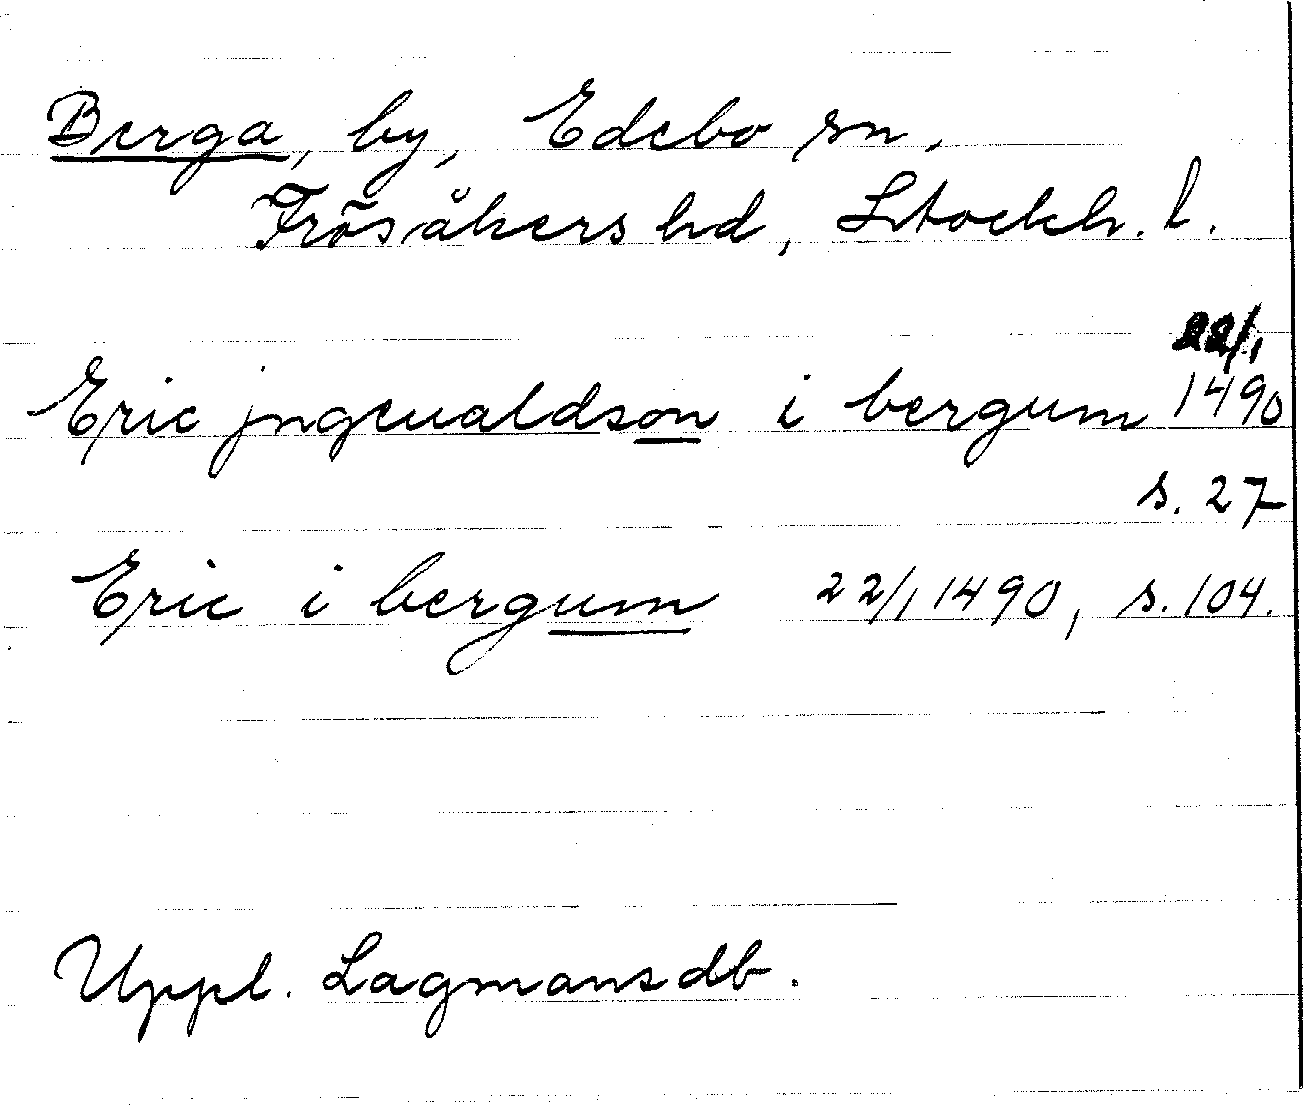 Berga, by, Edebo sn,
Frösåkers hd, Stockh. l.
22/1
Eric jngeualdson i bergum 1490
s. 27
Eric i bergum 22/1 1490, s. 104.
Uppl. Lagmansdb.